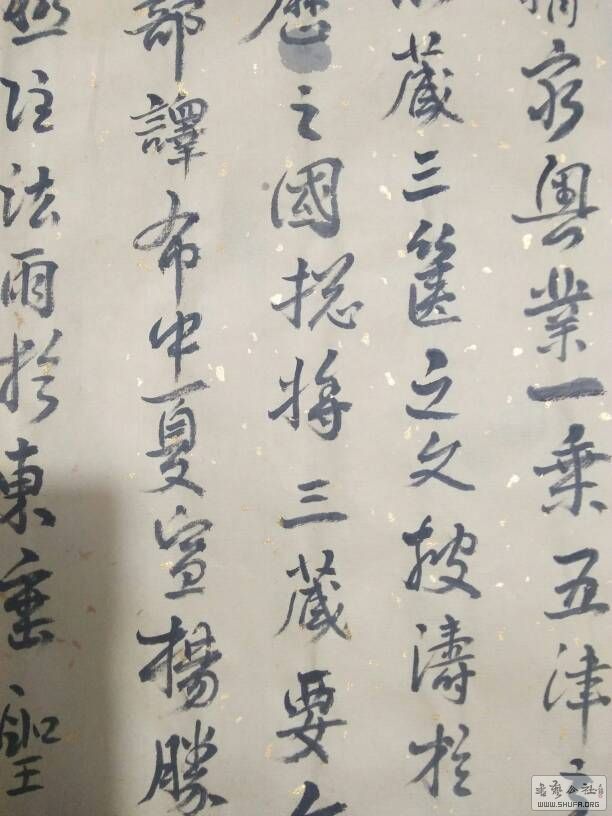 窮奧業一乘五律之
藏三篋之文波濤於
歷之國揔將三藏要
部譯布中夏宣揚勝
極注法雨於東垂聖
WWW.SHUFA.ORG